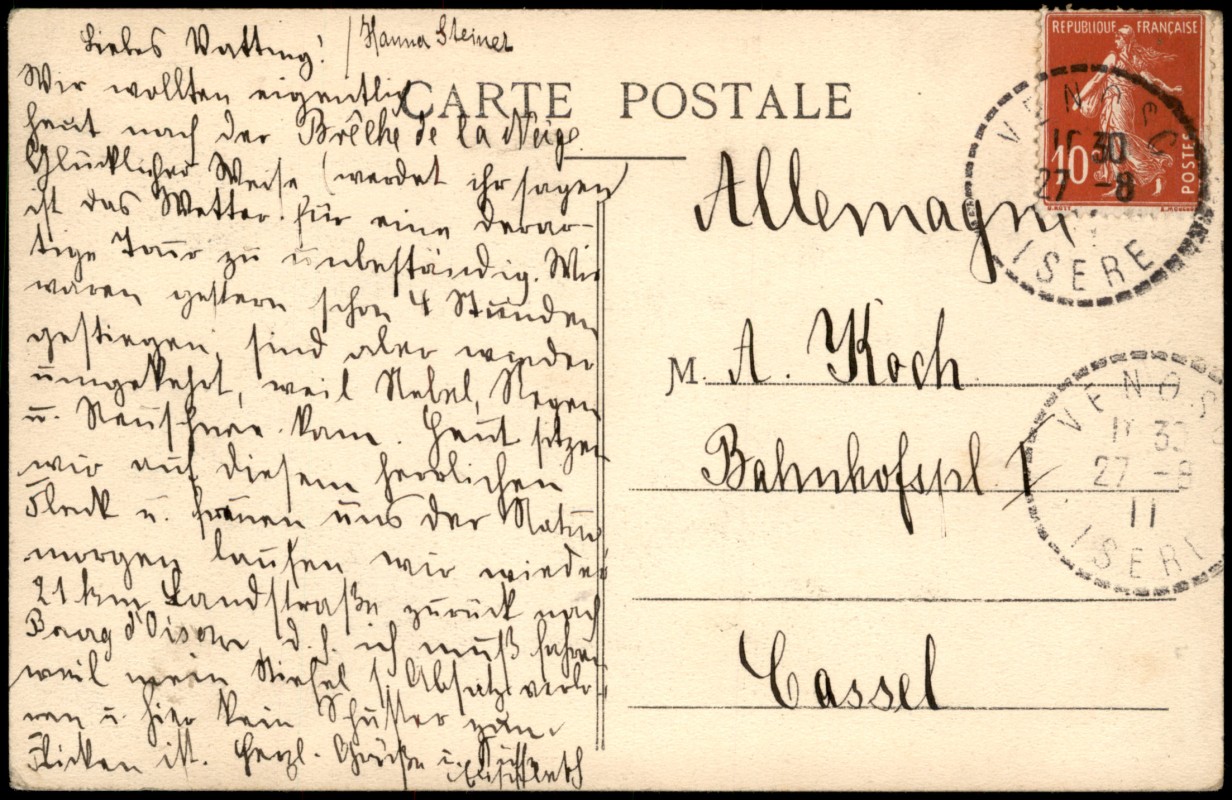 Liebes Vatting! / Hanna Steiner
Wir wollten eigentlich
heut nach der Brêche de la Neige.
Glücklicher Weise (werdet ihr sagen)
ist das Wetter für eine derar-
tige Tour zu unbeständig. Wir
waren gestern schon 4 Stunden
gestiegen, sind aber wieder
umgekehrt, weil Nebel, Regen
u. Neuschnee kam. Heut sitzen
wir auf diesem herrlichen
Fleck u. freuen uns der Natur
morgen laufen wir wieder
21 km Landstraße zurück nach
Bourg d'Oisans, d. h. ich muß fahren
weil mein Stiefel 1 Absatz verlo-
ren u. hier kein Schuster zum
Flicken ist. Herzl. Grüße u. Küsse
CARTE POSTALE
RÉPUBLIQUE FRANÇAISE
10 c
POSTES
VENOSC
11 30
27 -8
11
ISERE
Allemagne
M. A. Koch
Bahnhofspl. 1
Cassel
VENOS
11 30
27 -8
11
ISERE